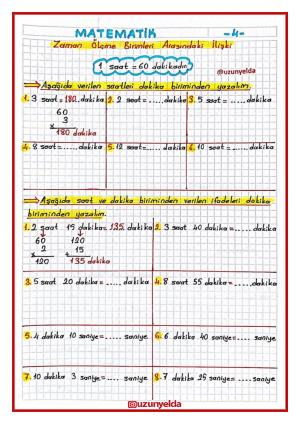 MATEMATİK -4-
Zaman Ölçme Birimleri Arasındaki İlişki
1 saat = 60 dakikadır.
@uzunyelda
Aşağıda verilen saatleri dakika biriminden yazalım.
1. 3 saat = 180 dakika 2. 2 saat = ..... dakika 3. 5 saat = ..... dakika
60
3
x
180 dakika
4. 8 saat = ..... dakika 5. 12 saat = ..... dakika 6. 10 saat = ..... dakika
Aşağıda saat ve dakika biriminden verilen ifadeleri dakika
biriminden yazalım.
1. 2 saat 15 dakika = 135 dakika 2. 3 saat 40 dakika = ..... dakika
60 120
2 15
x +
120 135 dakika
3. 5 saat 20 dakika = ..... dakika 4. 8 saat 55 dakika = ..... dakika
5. 4 dakika 10 saniye = ..... saniye 6. 6 dakika 40 saniye = ..... saniye
7. 10 dakika 3 saniye = ..... saniye 8. 7 dakika 25 saniye = ..... saniye
@uzunyelda